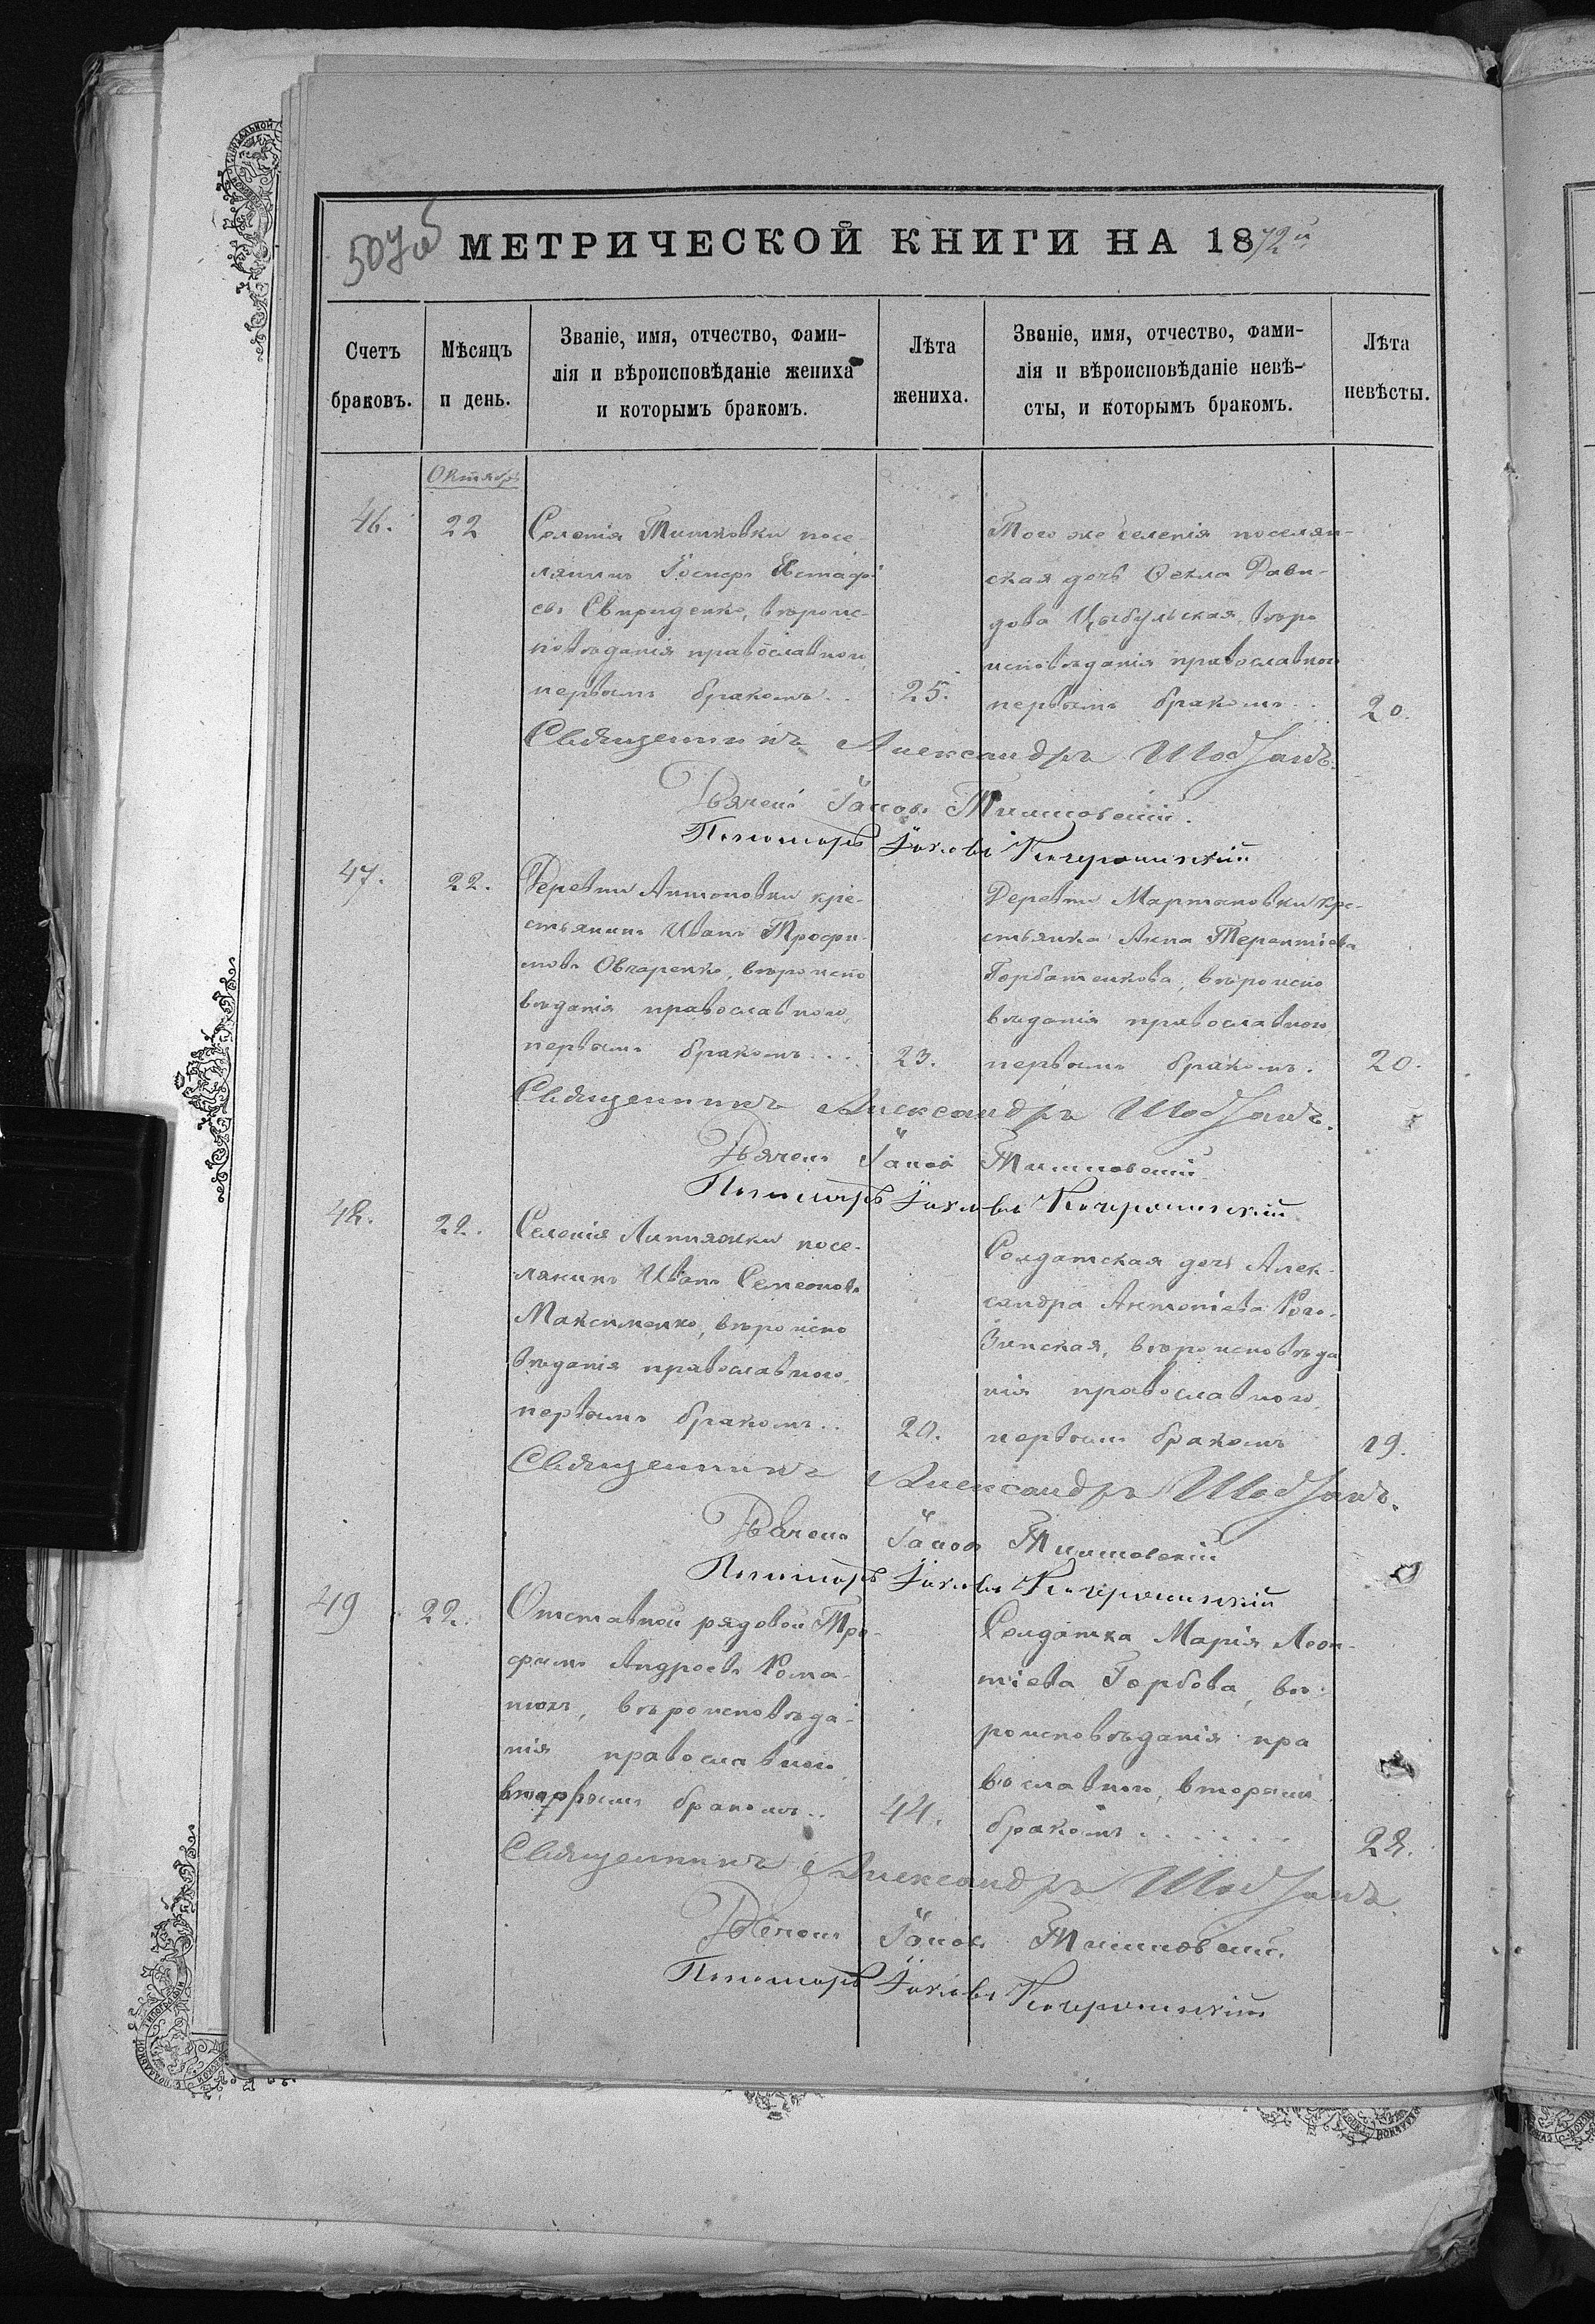 507об
МЕТРИЧЕСКОЙ КНИГИ НА 1872й
Счетъ браковъ.
Мѣсяцъ и день.
Званіе, имя, отчество, фами-
лія и вѣроисповѣданіе жениха
и которымъ бракомъ.
Лѣта жениха.
Званіе, имя, отчество, фами-
лія и вѣроисповѣданіе невѣ-
сты, и которымъ бракомъ.
Лѣта невѣсты.
Октябрь
46. 22
Селенія Тишковки посе-
лянинъ Іосифъ Евстафі-
евъ Свириденко, вѣроис-
повѣданія православнаго
первымъ бракомъ..
25.
Того же селенія поселян-
ская дочь Ѳекла Дави-
дова Цыбульская, вѣро
исповѣданія православнаго
первымъ бракомъ..
20.
Священникъ Александръ
Дьячекъ Іаковъ Тишковскій.
Пономарь Іаковъ
47. 22.
Деревни Антоновки кре-
стьянинъ Иванъ Трофи-
мовъ Овчаренко, вѣроиспо
вѣданія православнаго,
первымъ бракомъ...
23.
Деревни Мартоновки кре-
стьянка Анна Терентіева
Горбатенкова, вѣроиспо
вѣданія православнаго
первымъ бракомъ.
20.
Священникъ Александръ
Дьячекъ Іаковъ Тишковскій
Пономарь Іаковъ
48. 22.
Селенія Липняжки посе-
лянинъ Иванъ Семеоновъ
Максименко, вѣроиспо
вѣданія православнаго,
первымъ бракомъ..
20.
Солдатская дочь Алек-
сандра Антоніева Рого-
зинская, вѣроисповѣда
нія православнаго,
первымъ бракомъ
19.
Священникъ Александръ
Дьячекъ Іаковъ Тишковскій
Пономарь Іаковъ
49 22.
Отставной рядовой Тро-
фимъ Андреевъ Рома-
нюкъ, вѣроисповѣда-
нія православнаго,
вторымъ бракомъ..
44.
Солдатка Марія Леон-
тіева Горбова, вѣ-
роисповѣданія пра
вославнаго, вторымъ
бракомъ......
28.
Священникъ Александръ
Дьячекъ Іаковъ Тишковскій.
Пономарь Іаковъ